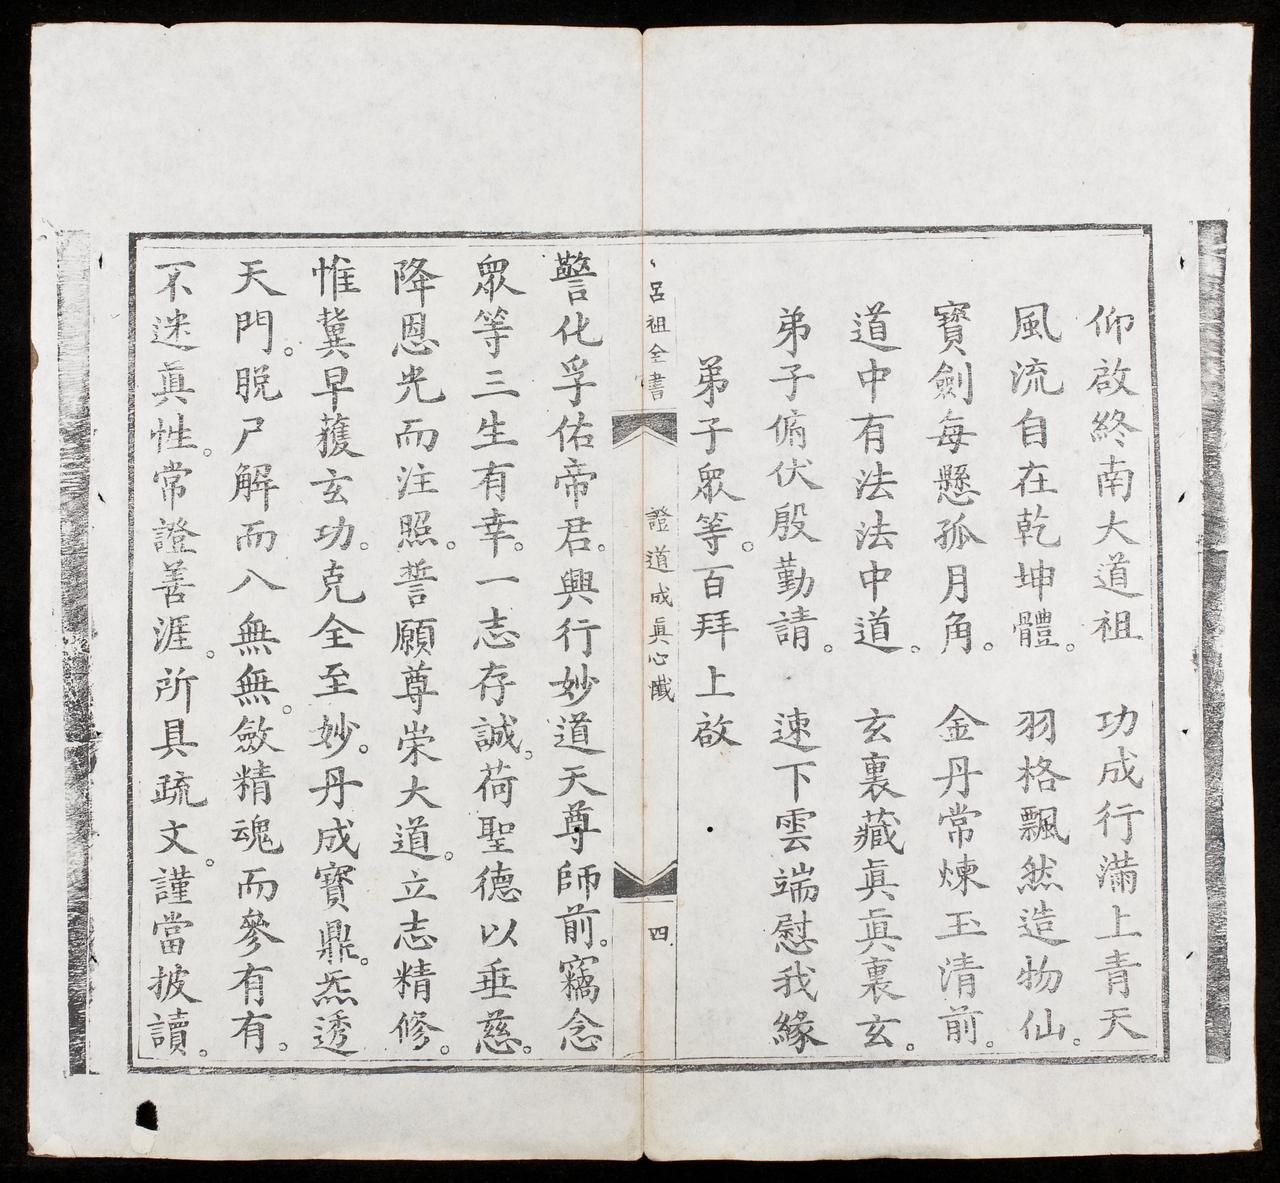 仰啟終南大道祖　功成行滿上青天
風流自在乾坤體。羽格飄然造物仙。
寶劍每懸孤月角。金丹常煉玉清前。
道中有法法中道。玄裏藏眞眞裏玄。
弟子俯伏殷勤請。速下雲端慰我緣
弟子眾等。百拜上啟
呂祖全書　證道成眞心懺　四
警化孚佑帝君。興行妙道天尊師前。竊念
眾等三生有幸。一志存誠。荷聖德以垂慈。
降恩光而注照。誓願尊崇大道。立志精修。
惟冀早獲玄功。克全至妙。丹成寶鼎。炁透
天門。脱尸解而八無無。斂精魂而參有有。
不迷眞性。常證善涯。所具疏文。謹當披讀。